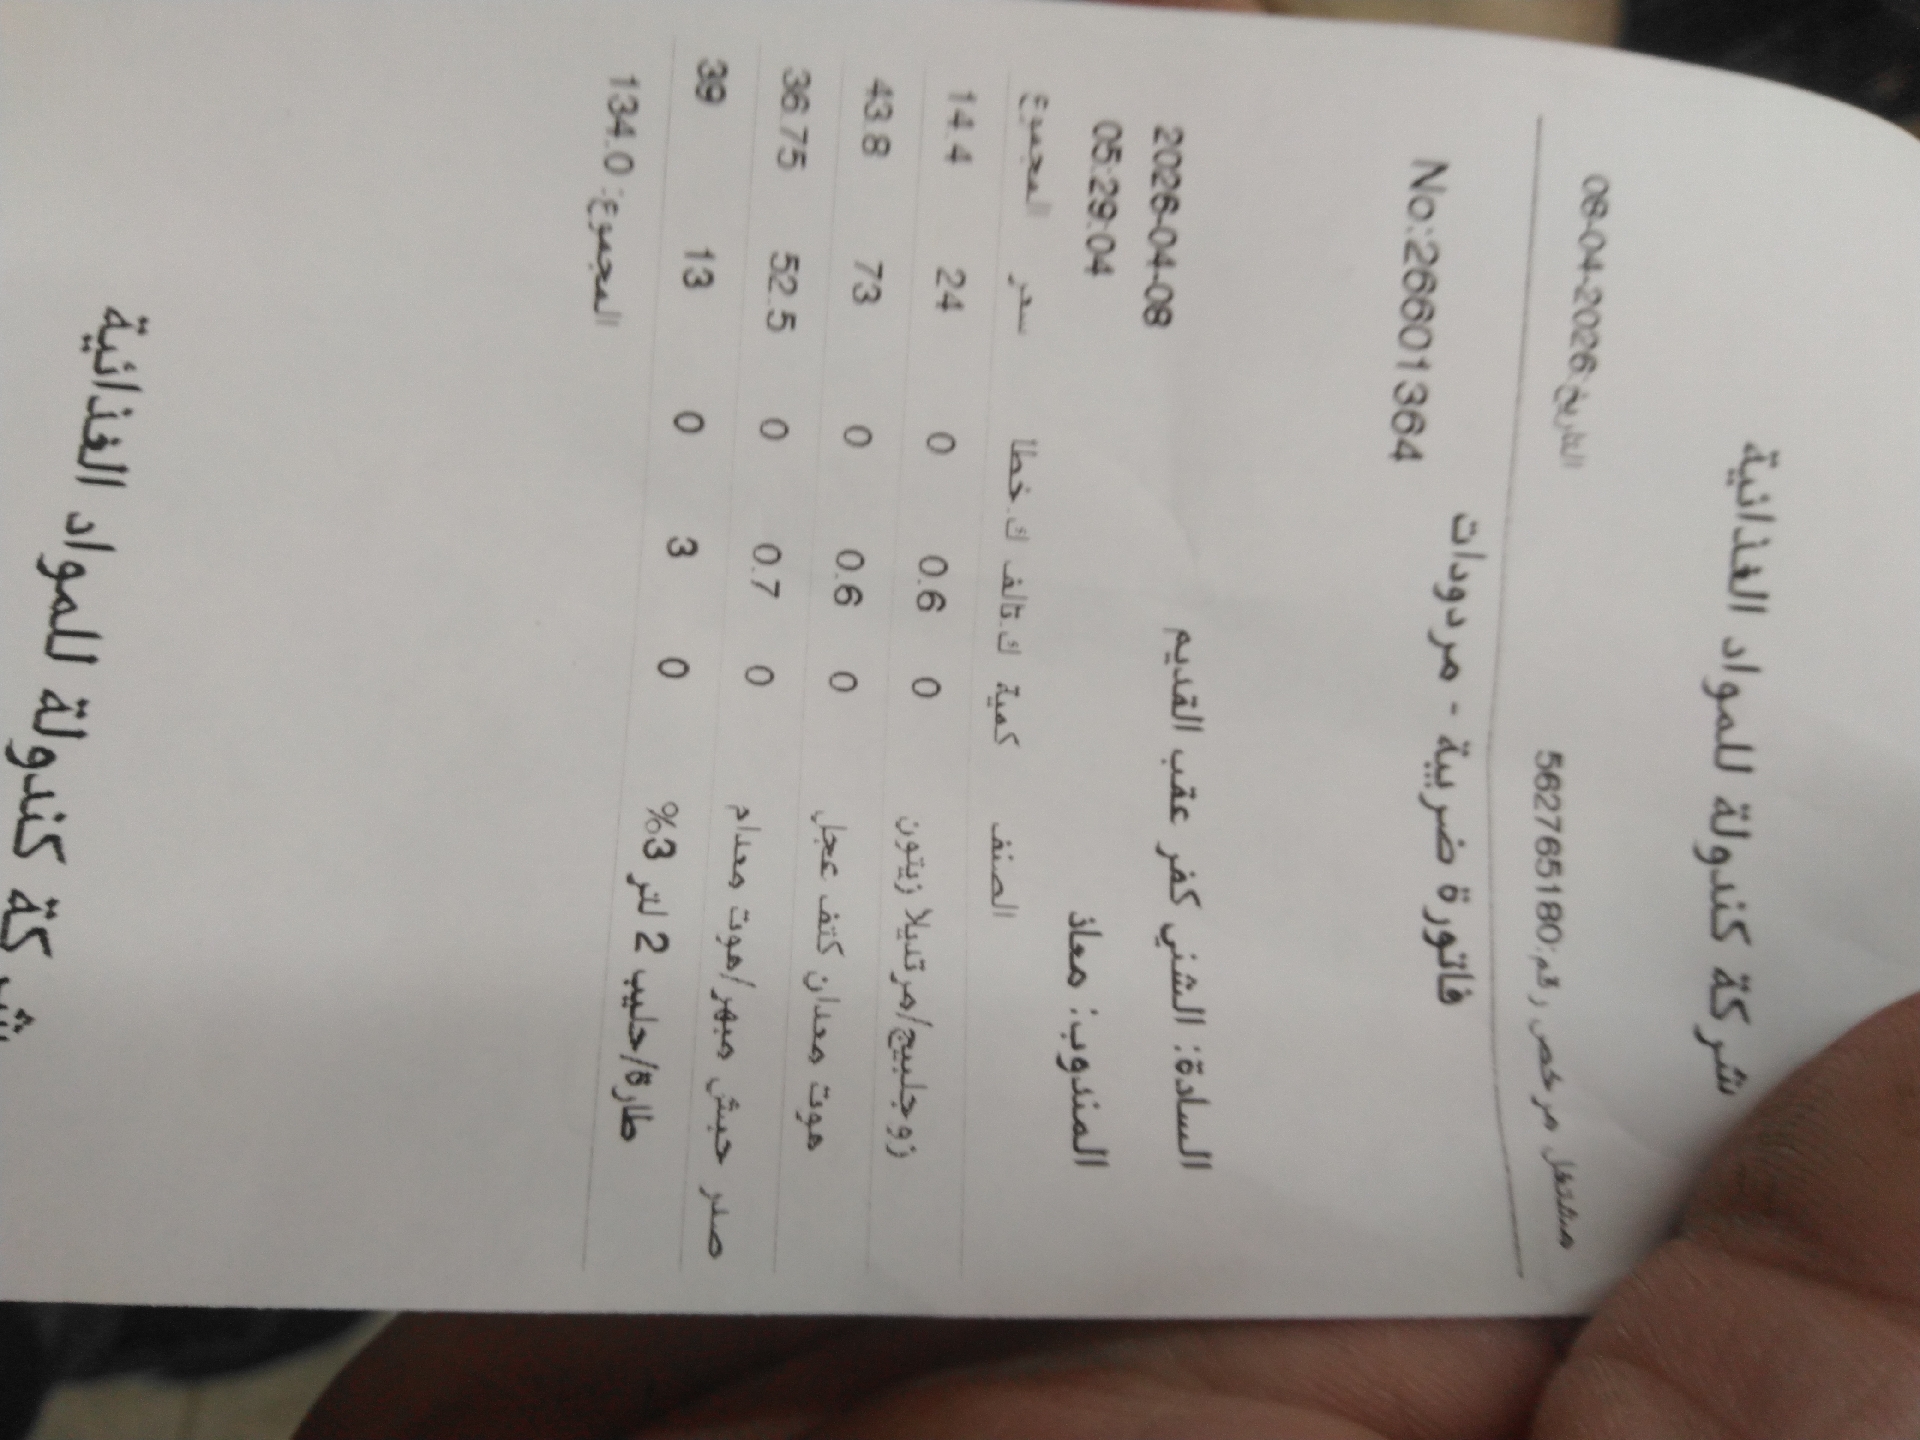 شركة كندولة للمواد الغذائية
مشتغل مرخص رقم:562765180 التاريخ:08-04-2026
فاتورة ضريبية - مردودات
No:26601364
السادة: الشني كفر عقب القديم 2026-04-08
المندوب: معاذ 05:29:04
الصنف كمية ك.تالف ك.خطا سعر المجموع
زوجلبيج/مرتديلا زيتون 0 0.6 0 24 14.4
موت معدان كتف عجل 0 0.6 0 73 43.8
صدر حبش مبهر/موت معدام 0 0.7 0 52.5 36.75
طارة/حليب 2 لتر 3% 0 3 0 13 39
المجموع: 134.0
شركة كندولة للمواد الغذائية